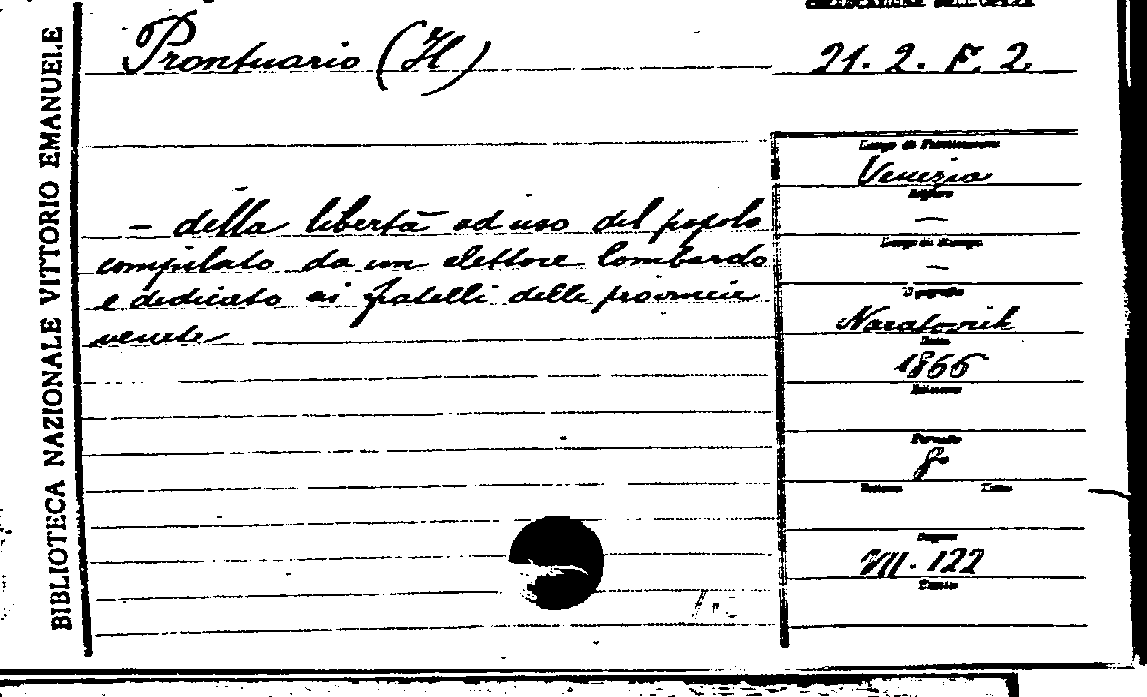 BIBLIOTECA NAZIONALE VITTORIO EMANUELE
COLLOCAZIONE DELL'OPERA
Prontuario (Il)
21. 2. F. 2.
— della libertà ad uso del popolo
compilato da un elettore lombardo
e dedicato ai fratelli delle provincie
venete
Luogo di Pubblicazione
Venezia
Editore
—
Luogo di Stampa
—
Tipografia
Naratovich
Data
1866
Edizione
Formato
8°
Volume
Pagine
VII-122